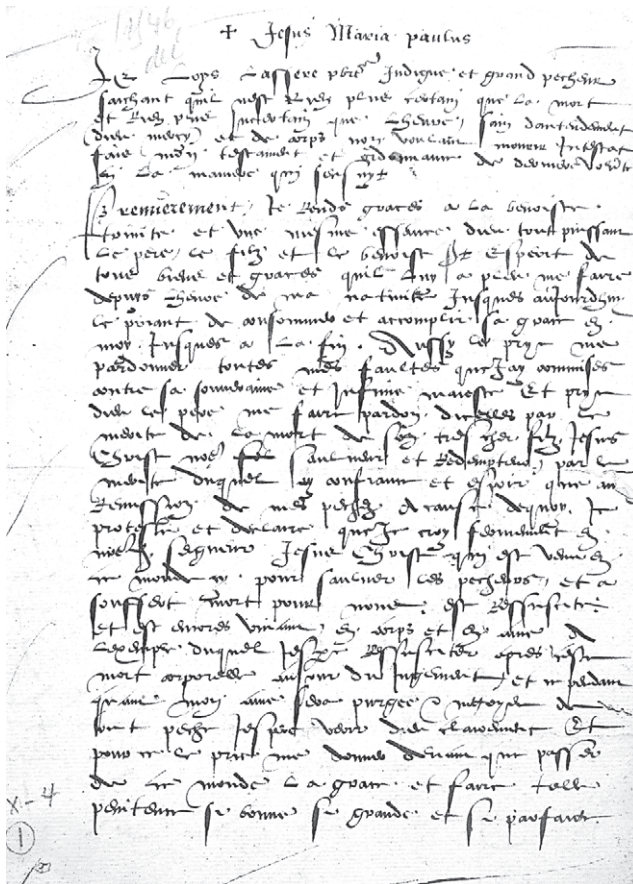 1546
del
+ Jesus Maria paulus
Je Loys Lassere pbre Indigne et grand pecheur
saichant quil nest Rien plus certain que la mort
et Rien plus Incertain que lheure, sain dantendement
(dieu mercy) et de corps non voulant mourir Intestat
faiz mon testament et ordonnance de derniere volunte
En La maniere qui sensuyt
Premierement, Je Rends graces a la benoiste
trinite et une mesme essence dieu tout puissant
le pere, le filz et le benoist st Esperit de
tous biens et graces quil luy a pleu me faire
depuis lheure de ma nativite Jusques aujourdhuy
le priant de consommer et accomplir sa grace en
moy Jusques a La fin. Aussy le prye me
pardonner toutes mes faultes que Jay commises
contre sa souveraine et Infinie maieste Et prye
dieu le pere me faire pardon dicelles par le
merite de la mort de son trescher filz Jesus
Christ seul saulveur et Redempteur, par le
merite duquel ay confiance et espoir que au
Remission de mes pechez A cause dequoy Je
proteste et declaire que Je croy fermement en
segneur Jesus Christ qui est venu en
ce monde pour saulver les pecheurs, et a
souffert mort pour nous, est Ressuscite
et est encores vivant en corps et en ame A
Lexemple duquel Ressusciter apres ceste
mort corporelle au Jour du Jugement, et ce pendant
quant mon ame sera purgee & netoyee de
tout peche Jespere veoir dieu clairement Et
pour ce le prie me donner devant que passer
de ce monde La grace et faire telle
penitence se bonne se grande et se parfaicte
X-4
1